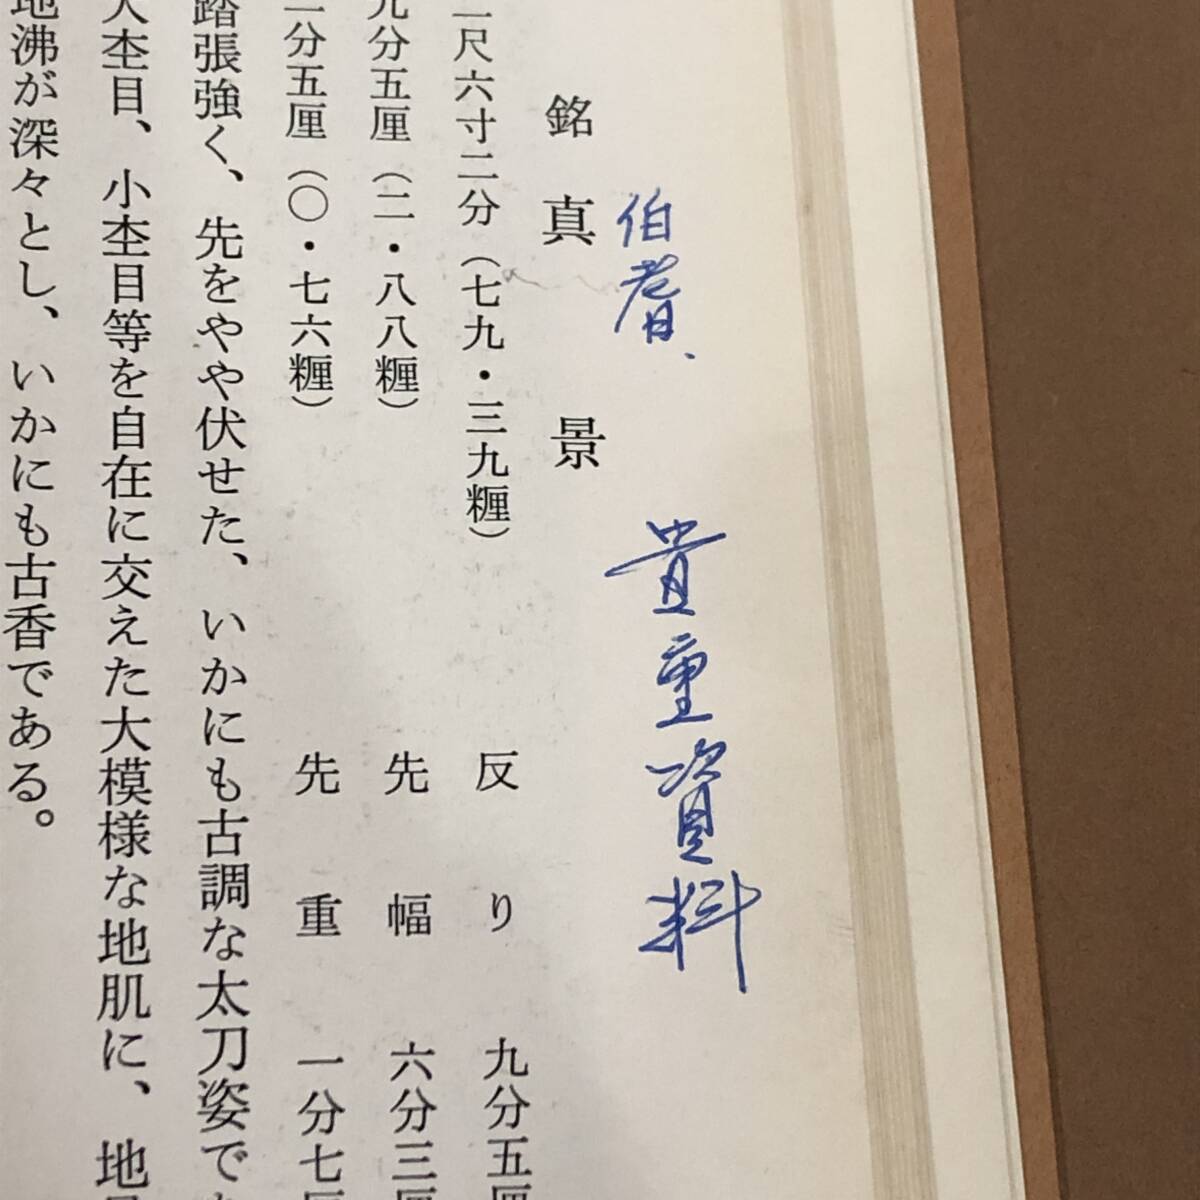 伯耆、貴重資料
銘 真 景
二尺六寸二分（七九・三九糎） 反り 九分五厘
九分五厘（二・八八糎） 先幅 六分三厘
二分五厘（〇・七六糎） 先重 一分七厘
踏張強く、先をやや伏せた、いかにも古調な太刀姿で
大杢目、小杢目等を自在に交えた大模様な地肌に、地
地沸が深々とし、いかにも古香である。